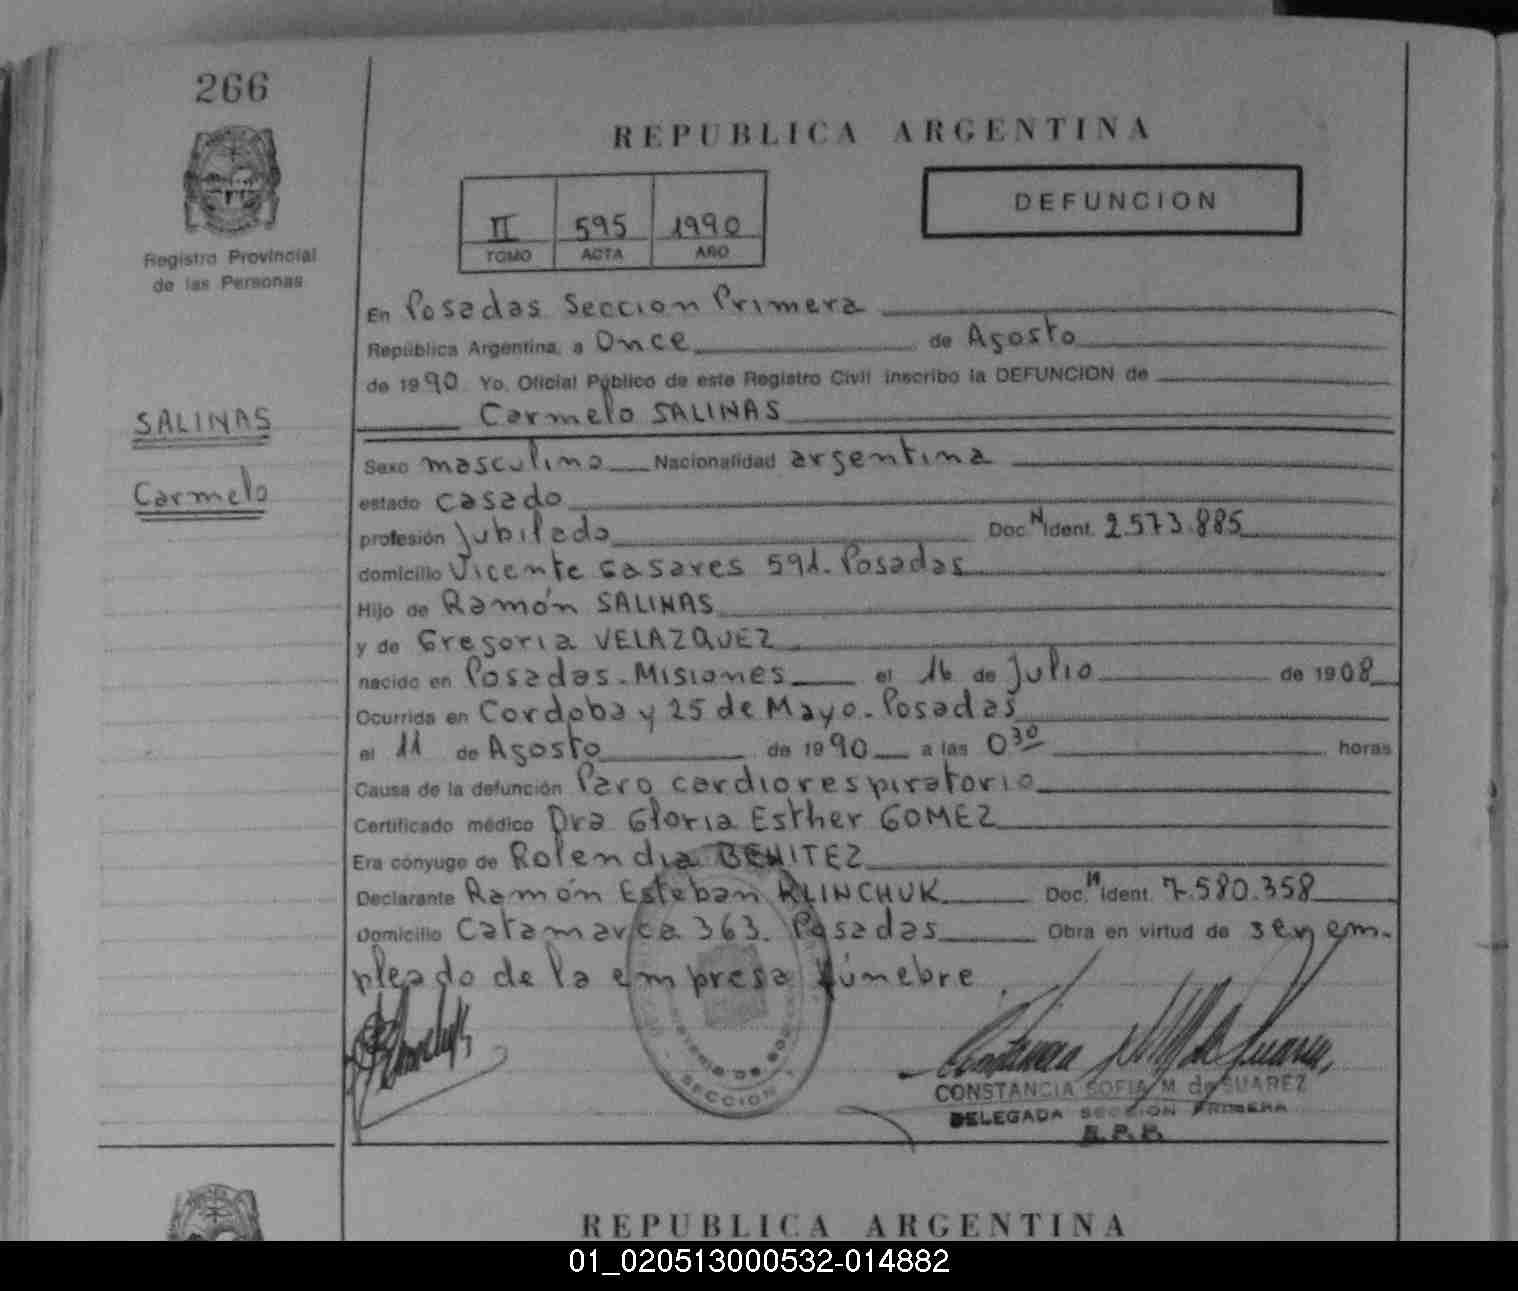 266
Registro Provincial
de las Personas
SALINAS
Carmelo
REPUBLICA ARGENTINA
II 595 1990
TOMO ACTA AÑO
DEFUNCION
En Posadas Seccion Primera
República Argentina, a Once de Agosto
de 1990 Yo, Oficial Público de este Registro Civil inscribo la DEFUNCION de
Carmelo SALINAS
Sexo masculino Nacionalidad argentina
estado casado
profesión Jubilado Doc. N Ident. 2.573.885
domicilio Vicente Casares 591. Posadas
Hijo de Ramón SALINAS
y de Gregoria VELAZQUEZ
nacido en Posadas - Misiones el 16 de Julio de 1908
Ocurrida en Cordoba y 25 de Mayo - Posadas
el 11 de Agosto de 1990 a las 0 30 horas
Causa de la defunción Paro cardiorespiratorio
Certificado médico Dra Gloria Esther GOMEZ
Era cónyuge de Rolendia BENITEZ
Declarante Ramón Esteban KLINCHUK Doc. N Ident. 7.580.358
Domicilio Catamarca 363. Posadas Obra en virtud de ser em-
pleado de la empresa fúnebre.
SECCION 1
CONSTANCIA SOFIA M. de SUAREZ
DELEGADA SECCION PRIMERA
R.P.P.
REPUBLICA ARGENTINA
01_020513000532-014882